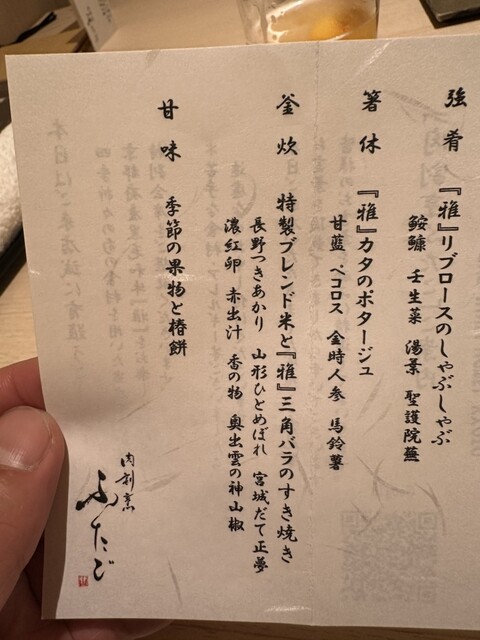 強肴 『雅』リブロースのしゃぶしゃぶ
鮟鱇 壬生菜 湯葉 聖護院蕪
箸休 『雅』カタのポタージュ
甘藍 ペコロス 金時人参 馬鈴薯
釜炊 特製ブレンド米と『雅』三角バラのすき焼き
長野つきあかり 山形ひとめぼれ 宮城だて正夢
濃紅卵 赤出汁 香の物 奥出雲の神山椒
甘味 季節の果物と椿餅
肉割烹
ふたご